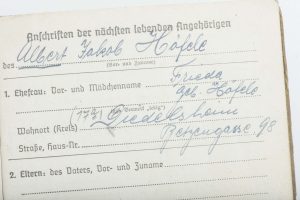 Anschriften der nächsten lebenden Angehörigen
des Albert Jakob Häfele
(Vor- und Zuname)
1. Ehefrau: Vor- und Mädchenname Frieda
geb. Häfele
(17a) Diedelsheim
Wohnort (Kreis)
Straße, Haus-Nr. Bergengasse 98
2. Eltern: des Vaters, Vor- und Zuname